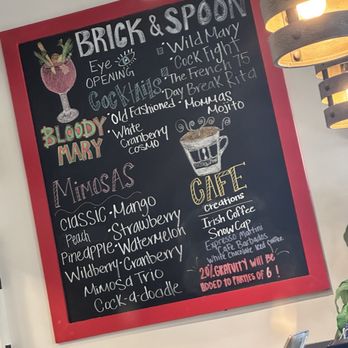 BRICK & SPOON
Eye-
OPENING
Cocktails
Wild Mary
Cock Fight
The French 75
Day Break Rita
BLOODY
MARY
Old Fashioned
Mommas
Mojito
White
Cranberry
Cosmo
MIMOSAS
Classic · Mango
Peach · Strawberry
Pineapple · Watermelon
Wildberry · Cranberry
Mimosa Trio
Cock-a-doodle
CAFE
Creations
Irish Coffee
Snow Cap
Espresso Martini
Cafe Barbados
White Chocolate Iced Coffee
20% GRATUITY WILL BE
ADDED TO PARTIES OF 6!